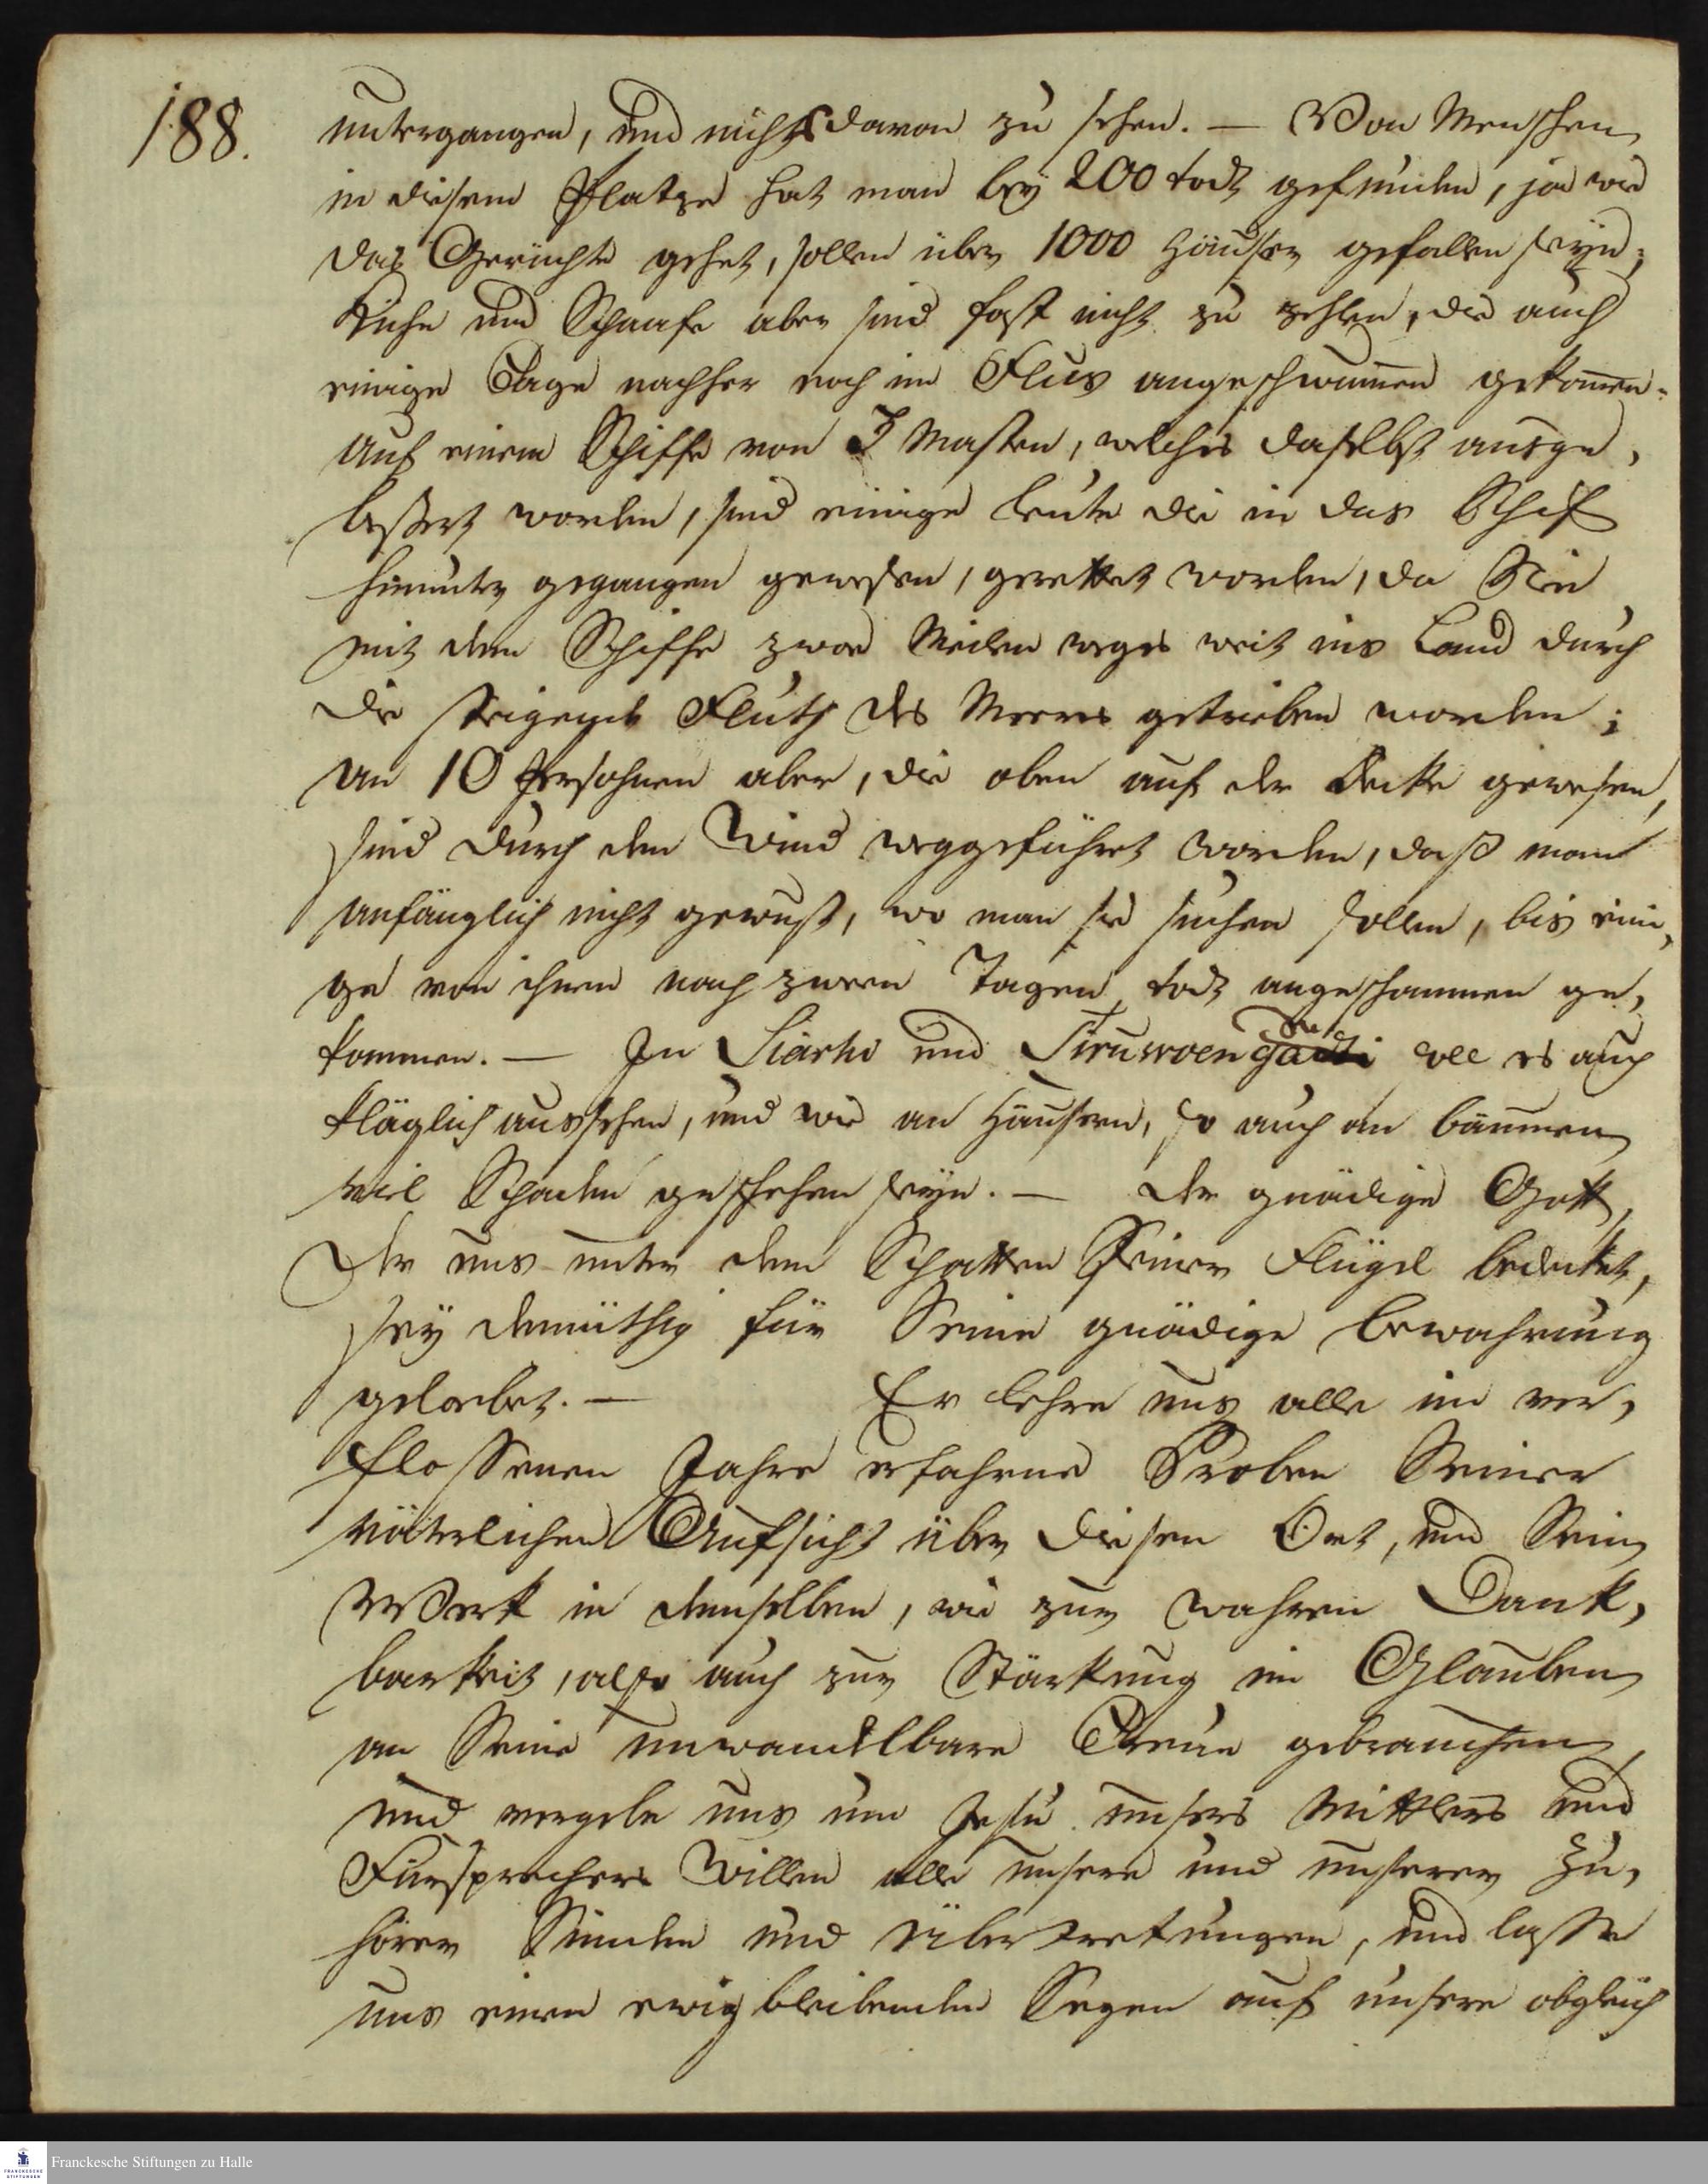 188.
untergangen, und nichts davon zu sehen. — Von Menschen
in diesem Platze hat man bey 200 todt gefunden, ja wie
das Gerüchte gehet, sollen über 1000 Häuser gefallen seyn;
Kühe und Schaafe aber sind fast nicht zu zehlen, die auch
einige Tage nachher noch im Flus angeschwum̅en gekom̅en.
Auf einem Schiffe von 3 Masten, welches daselbst ausge,
bessert worden, sind einige Leute die in das Schif
hinunter gegangen gewesen, gerettet worden, da Sie
mit dem Schiffe zwo Meilen weges weit ins Land durch
die steigende Fluth des Meeres getrieben worden;
an 10 Persohnen aber, die oben auf der Decke gewesen,
sind durch den Wind weggeführet worden, daß man
anfänglich nicht gewust, wo man sie suchen sollen, bis eini,
ge von ihnen nach zween Tagen todt angeschwommen ge,
kommen. — In Siarhi und soll es auch
kläglich aussehen, und wie an Häusern, so auch an bäumen
viel Schaden geschehen seyn. — Der gnädige Gott,
Der uns unter dem Schatten Seiner Flügel bedecket,
sey demüthig für Seine gnädige bewahrung
gelobet. — Er lehre uns alle im ver,
flossenen Jahre erfahrne Proben Seiner
väterlichen Aufsicht über diesen Ort, und Sein
Werk in demselben, wie zur wahren Dank,
barkeit, also auch zur Stärkung im Glauben
an Seine unwandelbare Treue gebrauchen,
und vergebe uns um Jesu unsers Mittlers und
Fürsprechers Willen alle unsere und unserer Zu,
hörer Sünden und Übertretungen, und lasse
uns einen ewig bleibenden Segen auf unsere obgleich
Franckesche Stiftungen zu Halle